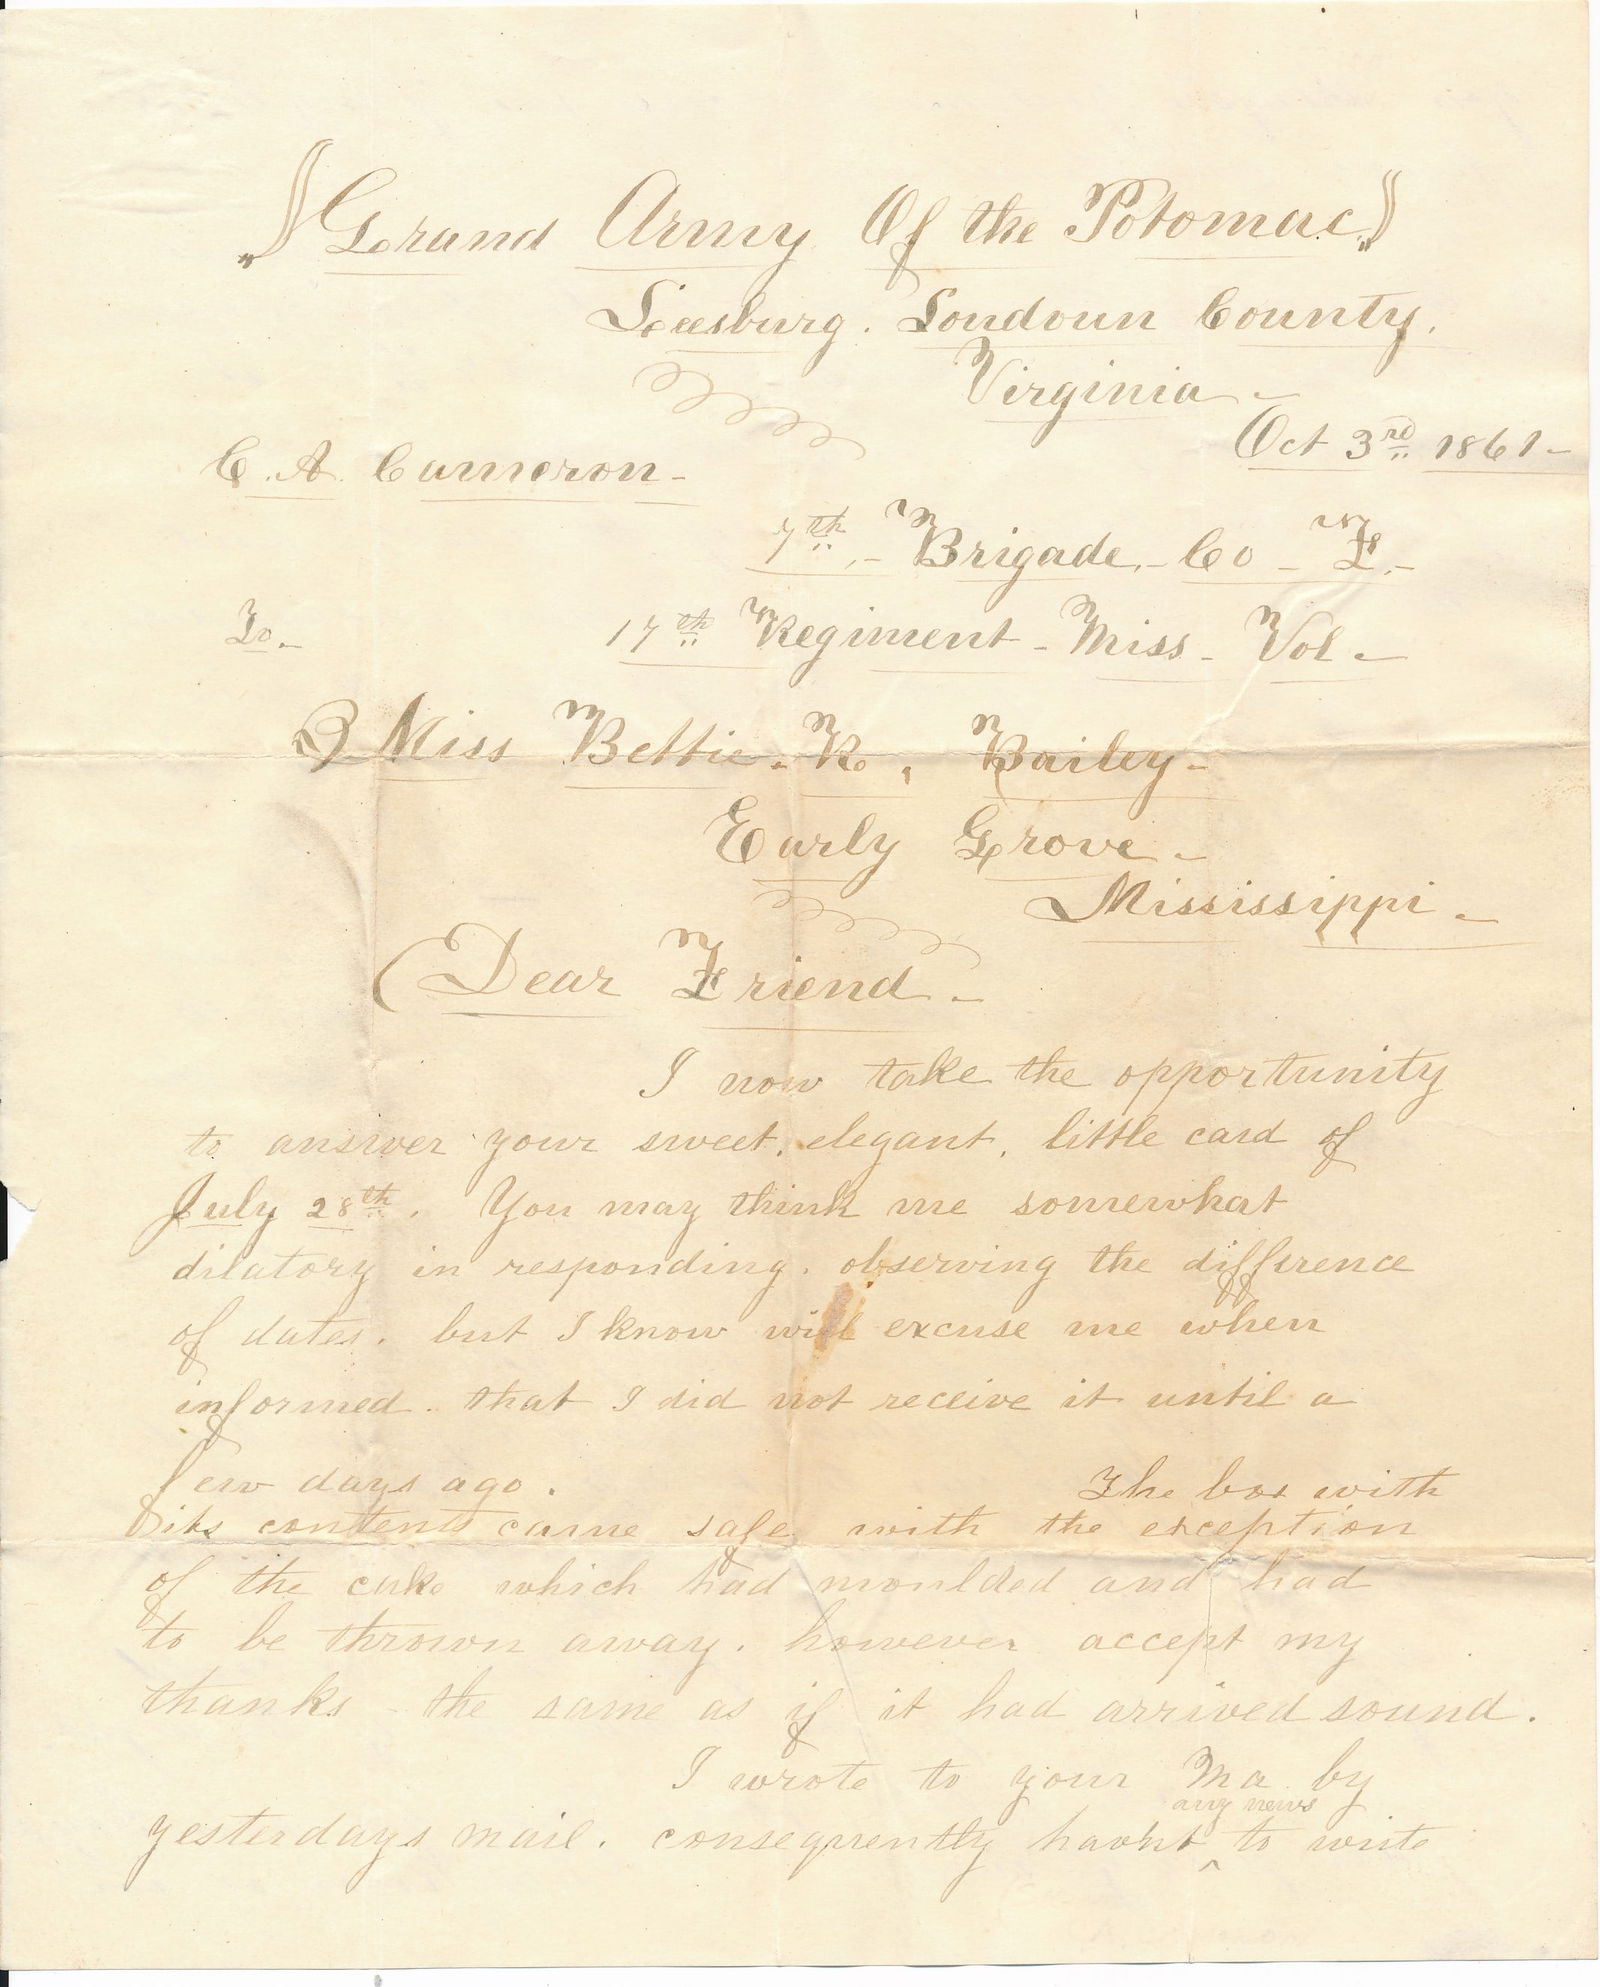 "Grand Army Of the Potomac"
Leesburg. Loudoun County.
Virginia -
Oct 3rd 1861 -
C. A. Cameron -
7th - Brigade, - Co - F. -
To. -
17th Regiment - Miss - Vol. -
Miss Bettie. K. Bailey -
Early Grove -
Mississippi -
(Dear Friend -
I now take the opportunity
to answer your sweet, elegant, little card of
July 28th. You may think me somewhat
dilatory in responding, observing the difference
of dates, but I know will excuse me when
informed. that I did not receive it until a
few days ago. The box with
its contents came safe with the exception
of the cake which had moulded and had
to be thrown away. however accept my
thanks - the same as if it had arrived sound.
I wrote to your Ma by
any news
yesterdays mail. consequently havnt ^ to write